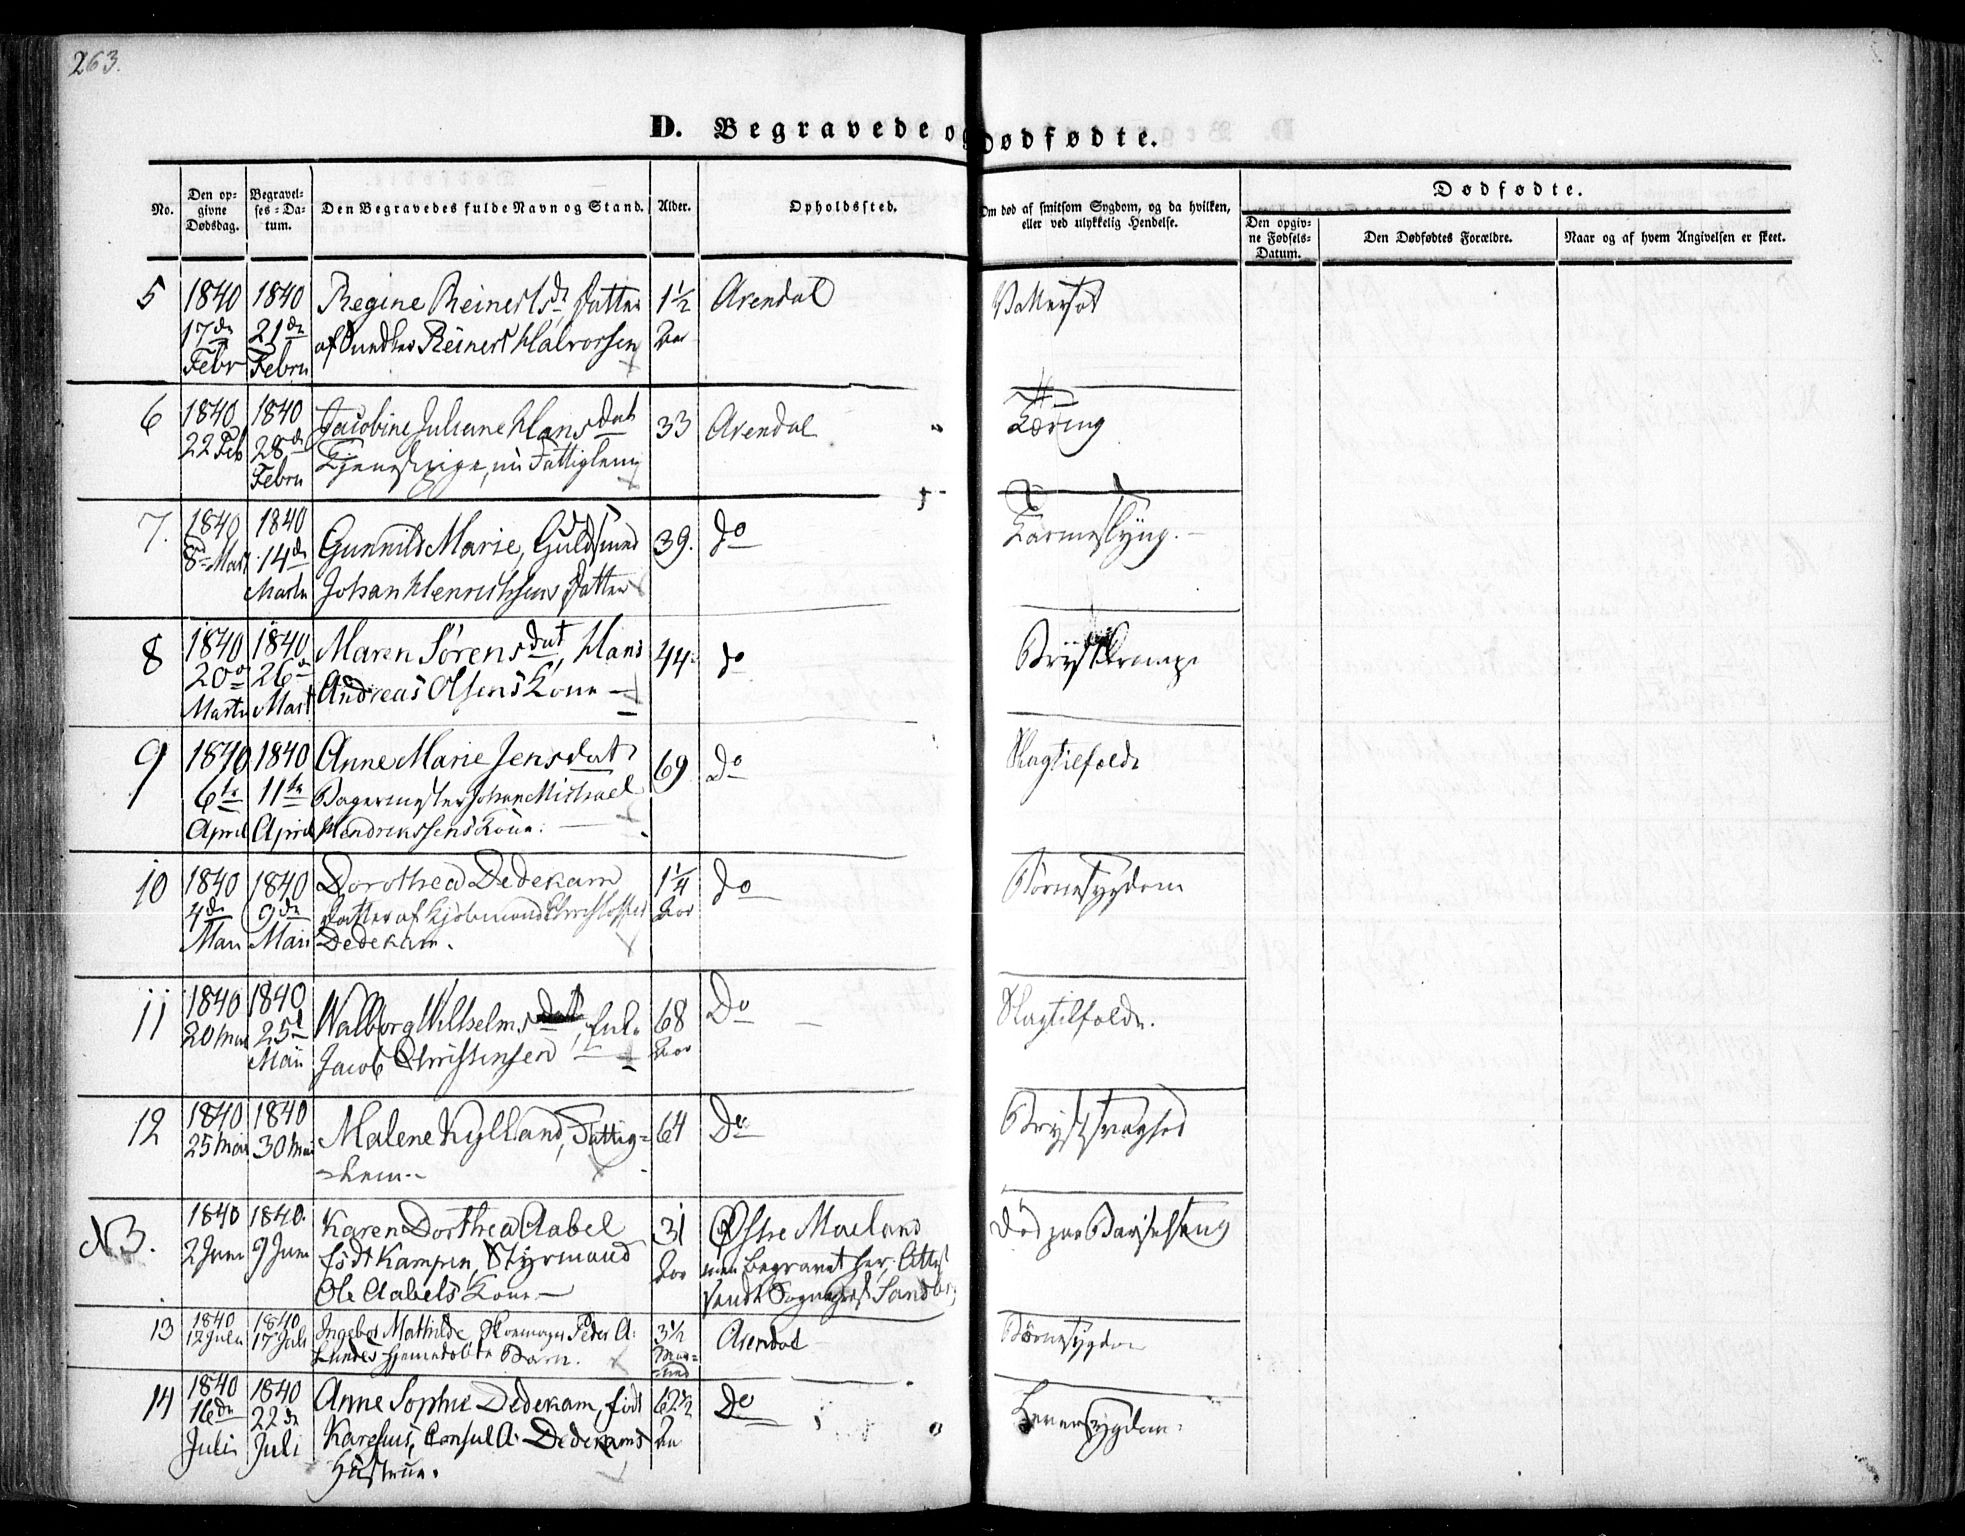 263.
D. Begravede og Dødfødte.
No.
Den opgivne Dødsdag.
Begravelses-Datum.
Den Begravedes fulde Navn og Stand.
Alder.
Opholdssted.
Om død af smitsom Sygdom, og da hvilken, eller ved ulykkelig Hendelse.
Dødfødte.
Den opgivne Fødsels-Datum.
Den Dødfødtes Forældre.
Naar og af hvem Angivelsen er skeet.
5 1840 1840 Regine Reinertsdr Datter 1½ Arendal Vattersot
17de 21de af Reinert Halvorsen Aar
Febr Febru
6 1840 1840 Jacobine Juliane Hansdat 33 Arendal Tæring
22 Feb 28de Tjenestpige, nu Fattiglem
Febru
7. 1840 1840 Gunnild Marie, Guldsmed 39. do
8de Mart 14de Johan Henrichsens Datter
Marts
8 1840 1840 Maren Sørensdat, Hans 44 do Brystkrampe
20de 26de Andreas Olsens Kone —
Marts Mart
9 1840 1840 Anne Marie Jensdat 69 Do Slagtilfælde
6te 11te Bagermester Johan Michael
April April Hendrikssens Kone. —
10 1840 1840 Dorothea Dedekam 1¼ do Børnesygdom
4de 9de Datter af Kjøbmand Christoffer Aar
Mai Maii Dedekam.
11 1840 1840 Walborg Wilhelmsdat, Enke 68 Do — Slagtilfælde.
20 Mai 25d Jacob Christensen — Aar
Maii
12 1840 1840 Malene Kylland, Fattig= 64 Do Brystsvaghed
25 Mai 30 Mai =Lem.
13. 1840 1840. Karen Dorthea Aabel 31 Østre Moeland Død paa Barselseng
2 Juni 9 Juni født Kampen, Styrmand Aar men begravet her, Attest
Ole Aabels Kone — sendt Sogneprest Sandberg
13 1840 1840 Ingebor Mathilde, Skomager Peder A: 3½ Arendal Børnesygdom
12 Juli 17 Juli Lundes hjemmedøbte Barn.
14 1840 1840 Anne Sophie Dedekam, født 62½ Do Leversygdom
16de 22de Karesius, Consul A. Dedekams Aar
Juli Juli Hustrue.